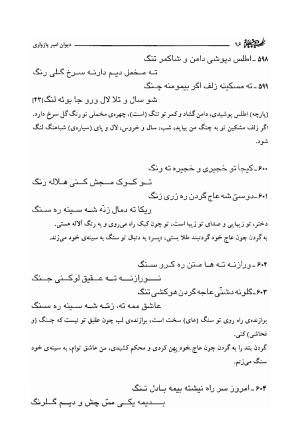 ۹۶ دیوان امیر پازواری
۵۹۸ ـ اطلس دپوشی دامن و شاکمر تنگ
ته مخمل دیم دارنه سرخ گلی رنگ
۵۹۹ ـ ته مسکینه زلف اگر بیمونه چنگ
شو سال و تلا لال ورو جا بوئه لنگ(۴۳)
(پارچه) اطلس پوشیدی، دامن گشاد و کمر تو تنگ (است)، چهره‌ی مخملی تو رنگ گل سرخ دارد.
اگر زلف مشکین تو به چنگ من بیاید، شب، سال و خروس، لال و پای (سیاره‌ی) شباهنگ لنگ
شود.
۶۰۰ ـ کیجا تو خجیری و خجیره ته ونگ
تو کوک مجش کنی هلاله رنگ
۶۰۱ ـ دوسی شه عاج گردن ره زری زنگ
ریکا ته دمال زنّه شه سینه ره سنگ
دختر، تو زیبایی و صدای تو زیبا است، تو چون کبک راه می‌روی و به رنگ آلاله هستی.
به گردن چون عاج خود گردنبند طلا بستی، (پسر) به دنبال تو سنگ به سینه‌ی خود می‌زند.
۶۰۲ ـ ورازنه ته ها متن ره کرو سنگ
نورازنه ته عقیق لوکنی جنگ
۶۰۳ ـ کلونه دشتی عاجه گردن هوکشی تنگ
عاشق ممه ته، زمّه شه سینه ره سنگ
برازنده‌ی راه روی تو سنگ (های) سخت است، برازنده‌ی لب چون عقیق تو نیست که (جنگ) (و
فحاشی) کنی.
گردن بند را به گردن چون عاج خود پهن کردی و محکم کشیدی، من عاشق توام، به سینه‌ی خود
سنگ می‌زنم.
۶۰۴ ـ امروز سر راه نیشته بیمه بادل تنگ
بدیمه یکی مسّ چش و دیم گلرنگ